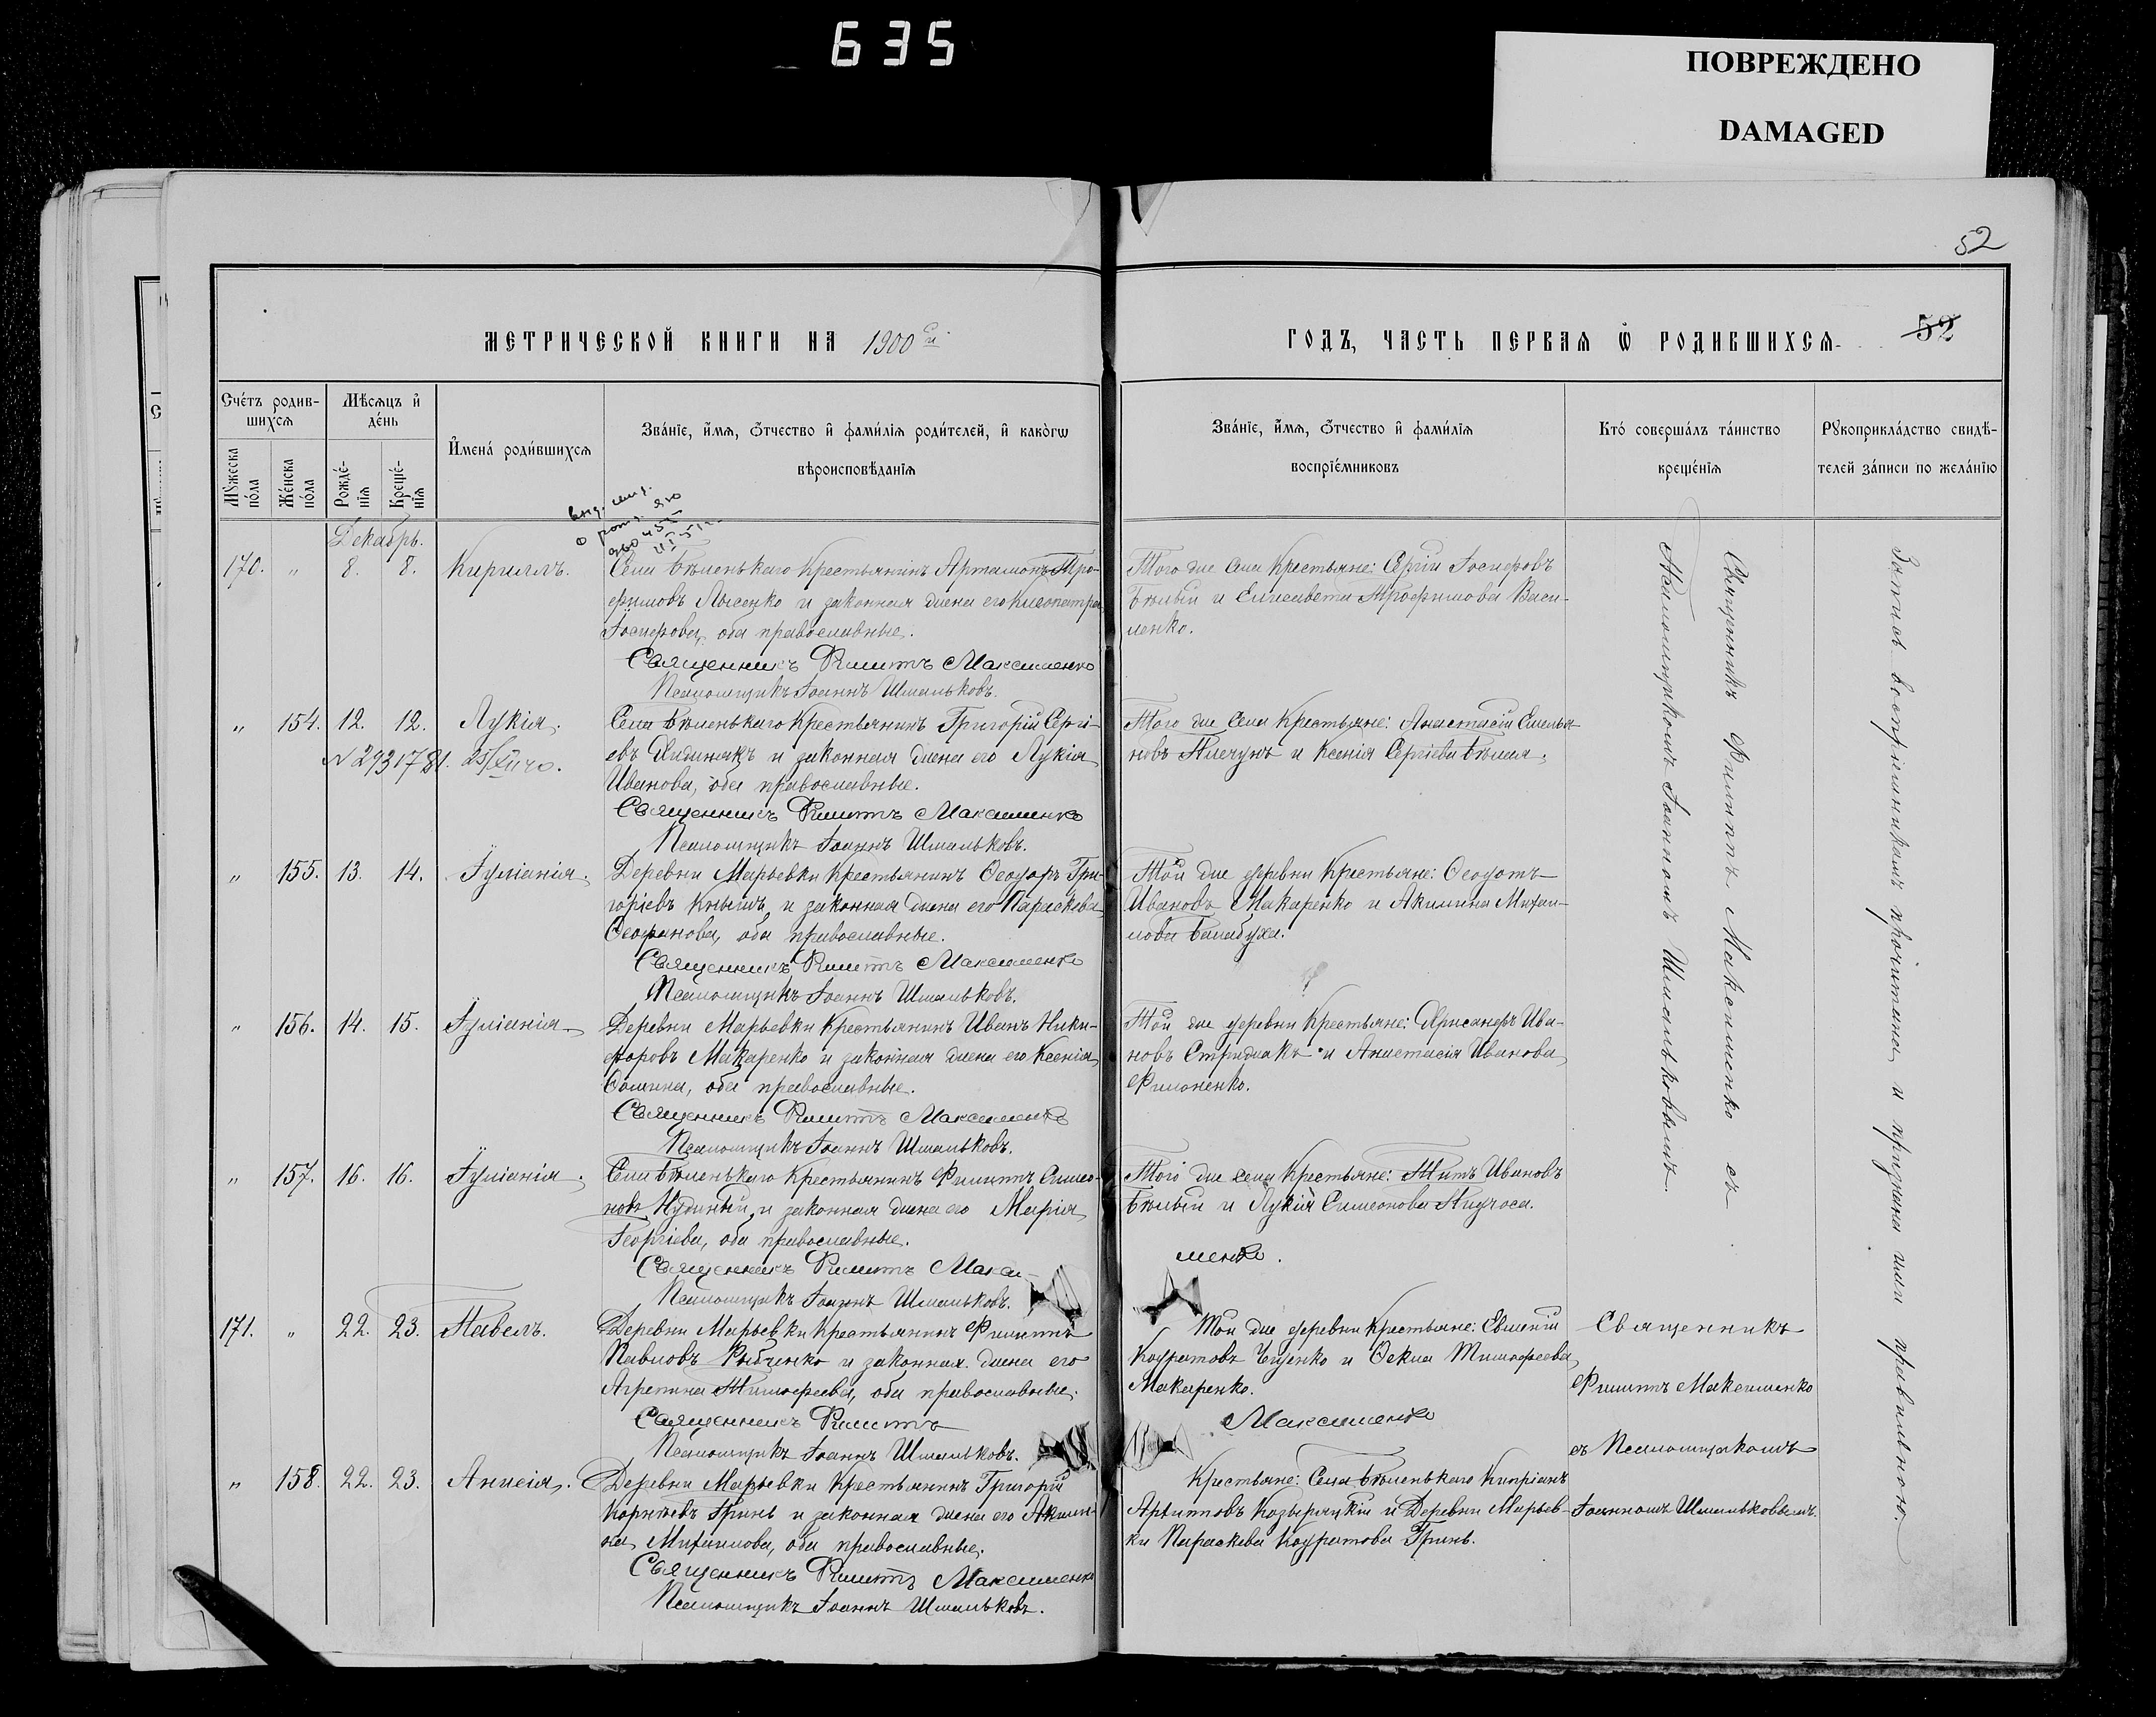 635
ПОВРЕЖДЕНО
DAMAGED
52
МЕТРИЧЕСКОЙ КНИГИ НА 1900й
ГОДЪ, ЧАСТЬ ПЕРВАЯ Ѿ РОДИВШИХСЯ
52
Счетъ родив-
шихся
Мѣсяцъ и
день
Мужеска
пола
Женска
пола
Рожде-
нія
Креще-
нія
Имена родившихся
Званіе, имя, отчество и фамилія родителей, и какогѡ
вѣроисповѣданія
Званіе, имя, отчество и фамилія
воспріемниковъ
Кто совершалъ таинство
крещенія
Рукоприкладство свидѣ-
телей записи по желанію
Декабрь.
170. " 8. 8. Кириллъ.
Села Бѣленькаго крестьянинъ Артамонъ Тро-
фимовъ Лысенко и законная жена его Клеопатра
Іосифова, оба православные.
Священникъ Филиппъ Максименко
Псаломщикъ Іоаннъ Шмальковъ.
Того же села крестьяне: Сергій Іосифовъ
Бѣлый и Елисавета Трофимова Васи-
ленко.
" 154. 12. 12. Лукія.
N 2931781. 25/XII 40.
Села Бѣленькаго крестьянинъ Григорій Сергі-
евъ и законная жена его Лукія
Иванова, оба православные.
Священникъ Филиппъ Максименко
Псаломщикъ Іоаннъ Шмальковъ.
Того же села крестьяне: Анастасій Емелья-
новъ и Ксенія Сергіева Бѣлая.
" 155. 13. 14. Іуліанія.
Деревни Марьевки крестьянинъ Ѳеодоръ Гри-
горіевъ Кнышъ и законная жена его Параскева
Ѳеофанова, оба православные.
Священникъ Филиппъ Максименко
Псаломщикъ Іоаннъ Шмальковъ.
Той же деревни крестьяне: Ѳеодотъ
Ивановъ Макаренко и Акилина Михаи-
лова Балабуха.
" 156. 14. 15. Іуліанія.
Деревни Марьевки крестьянинъ Иванъ Ники-
форовъ Макаренко и законная жена его Ксенія
Ѳомина, оба православные.
Священникъ Филиппъ Максименко
Псаломщикъ Іоаннъ Шмальковъ.
Той же деревни крестьяне: Ива-
новъ Стрижакъ и Анастасія Иванова
Филоненко.
" 157. 16. 16. Іуліанія.
Села Бѣленькаго крестьянинъ Филиппъ Симео-
новъ и законная жена его Марія
Георгіева, оба православные.
Священникъ Филиппъ Макси-
менко.
Псаломщикъ Іоаннъ Шмальковъ.
Того же села крестьяне: Титъ Ивановъ
Бѣлый и Лукія Симеонова
171. " 22. 23. Павелъ.
Деревни Марьевки крестьянинъ Филиппъ
Павловъ Рыбченко и законная жена его
Агрепина Тимофеева, оба православные.
Священникъ Филиппъ
Максименко
Псаломщикъ Іоаннъ Шмальковъ.
Той же деревни крестьяне: Евменій
Кодратовъ и Ѳекла Тимофеева
Макаренко.
Священникъ
Филиппъ Максименко
съ Псаломщикомъ
Іоанномъ Шмальковымъ.
" 158. 22. 23. Анисія.
Деревни Марьевки крестьянинъ Григорій
Корнѣевъ Гринь и законная жена его Акили-
на Михаилова, оба православные.
Священникъ Филиппъ Максименко
Псаломщикъ Іоаннъ Шмальковъ.
Крестьяне: Села Бѣленькаго Кипріанъ
Козырицкій и Деревни Марьев-
ки Параскева Кодратова Гринь.
Священникъ Филиппъ Максименко съ
Псаломщикомъ Іоанномъ Шмальковымъ.
Запись воспріемникамъ прочитана и признана ими правильною.